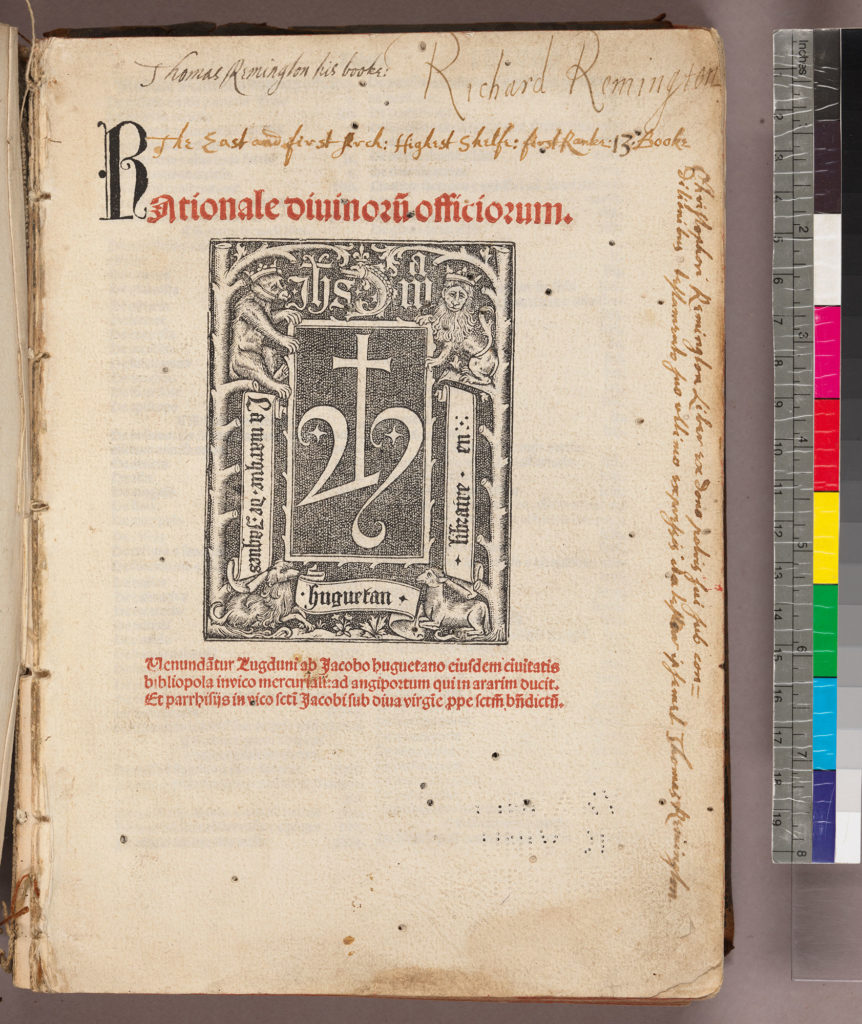 Thomas Remington his booke:
Richard Remington
The East and first Arch: Highest Shelfe: first Ranke: 13. Booke
RAtionale diuinorū officiorum.
Jhs
a
m
La marque · de Jaques
huguetan
libraire · en
Uenundātur Lugduni ab Jacobo huguetano eiusdem ciuitatis
bibliopola in vico mercuriali: ad angiportum qui in ararim ducit.
Et parrhisijs in vico scti Jacobi sub diua virgīe ꝓpe sctm̄ bn̄dictū.
Christopheri Remington Liber ex dono patris sui sub con=
ditionibus testamento suo ultimo expressis Thomas Remington
Inches
1
2
3
4
5
6
7
8
9
10
11
12
13
14
15
16
17
18
19
2
3
4
5
6
8